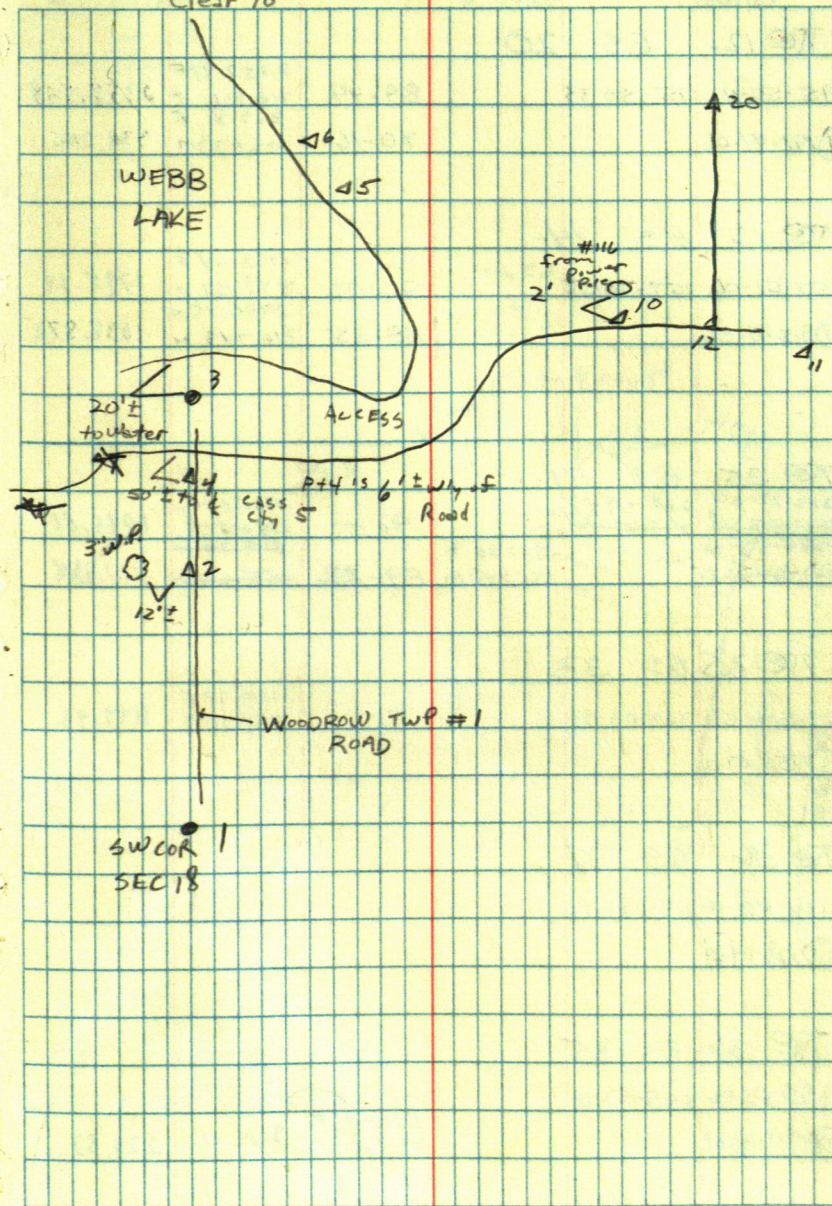 Clear 70°
6
5
WEBB
LAKE
20
#116
from
Power
Pole
2'
10
12
11
3
20'±
to water
ACCESS
4
50'± to ℄
Cass
Cty 5
Pt 4 is 6'± wly of
Road
3' W.P.
2
12'±
WOODROW TWP #1
ROAD
1
SW COR
SEC 18